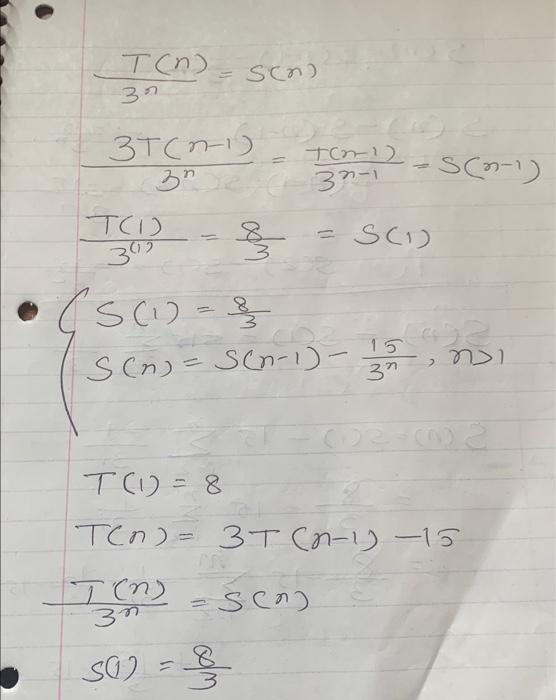 T(n)/3^n = S(n)
3T(n-1)/3^n = T(n-1)/3^(n-1) = S(n-1)
T(1)/3^(1) = 8/3 = S(1)
{ S(1) = 8/3
S(n) = S(n-1) - 15/3^n , n>1
T(1) = 8
T(n) = 3T(n-1) -15
T(n)/3^n = S(n)
S(1) = 8/3